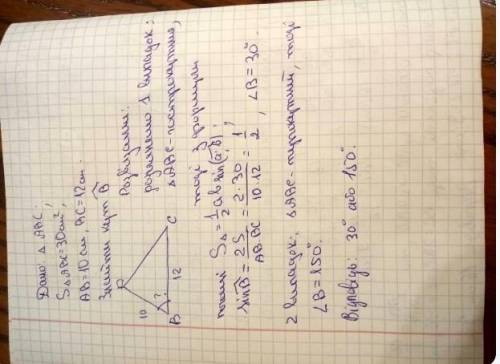 Дано: △ABC,
S△ABC=30см²,
AB=10см, BC=12см.
Знайти кут B̂
Розв'язання:
розглянемо 1 випадок:
△ABC-гострокутний,
тоді з формули
площі S△=1/2 ab sin(a;b);
sinB̂ = 2S/AB·BC = 2·30/10·12 = 1/2, ∠B=30°.
2 випадок: △ABC-тупокутний, тоді
∠B=150°.
Відповідь: 30° або 150°.
10
?
B
12
C